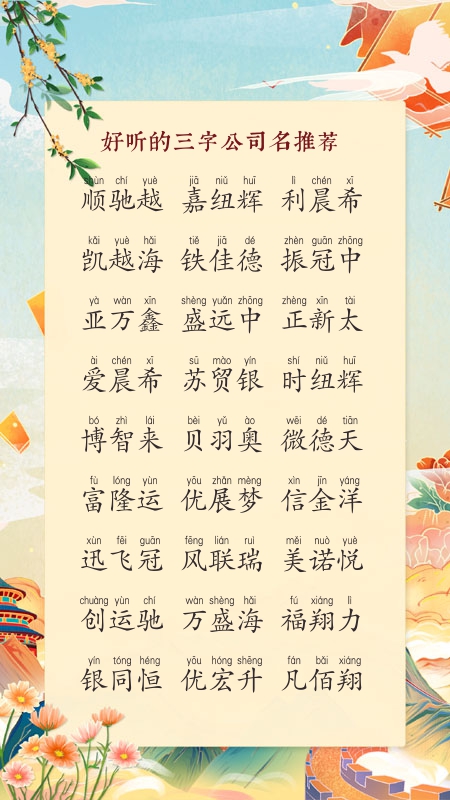 好听的三字公司名推荐
shùn chí yuè jiā niǔ huī lì chén xī
顺驰越 嘉纽辉 利晨希
kǎi yuè hǎi tiě jiā dé zhèn guān zhōng
凯越海 铁佳德 振冠中
yà wàn xīn shèng yuǎn zhōng zhèng xīn tài
亚万鑫 盛远中 正新太
ài chén xī sū mào yín shí niǔ huī
爱晨希 苏贸银 时纽辉
bó zhì lái bèi yǔ ào wēi dé tiān
博智来 贝羽奥 微德天
fù lóng yùn yōu zhǎn mèng xìn jīn yáng
富隆运 优展梦 信金洋
xùn fēi guān fēng lián ruì měi nuò yuè
迅飞冠 风联瑞 美诺悦
chuàng yùn chí wàn shèng hǎi fú xiáng lì
创运驰 万盛海 福翔力
yín tóng héng yōu hóng shēng fán bǎi xiáng
银同恒 优宏升 凡佰翔